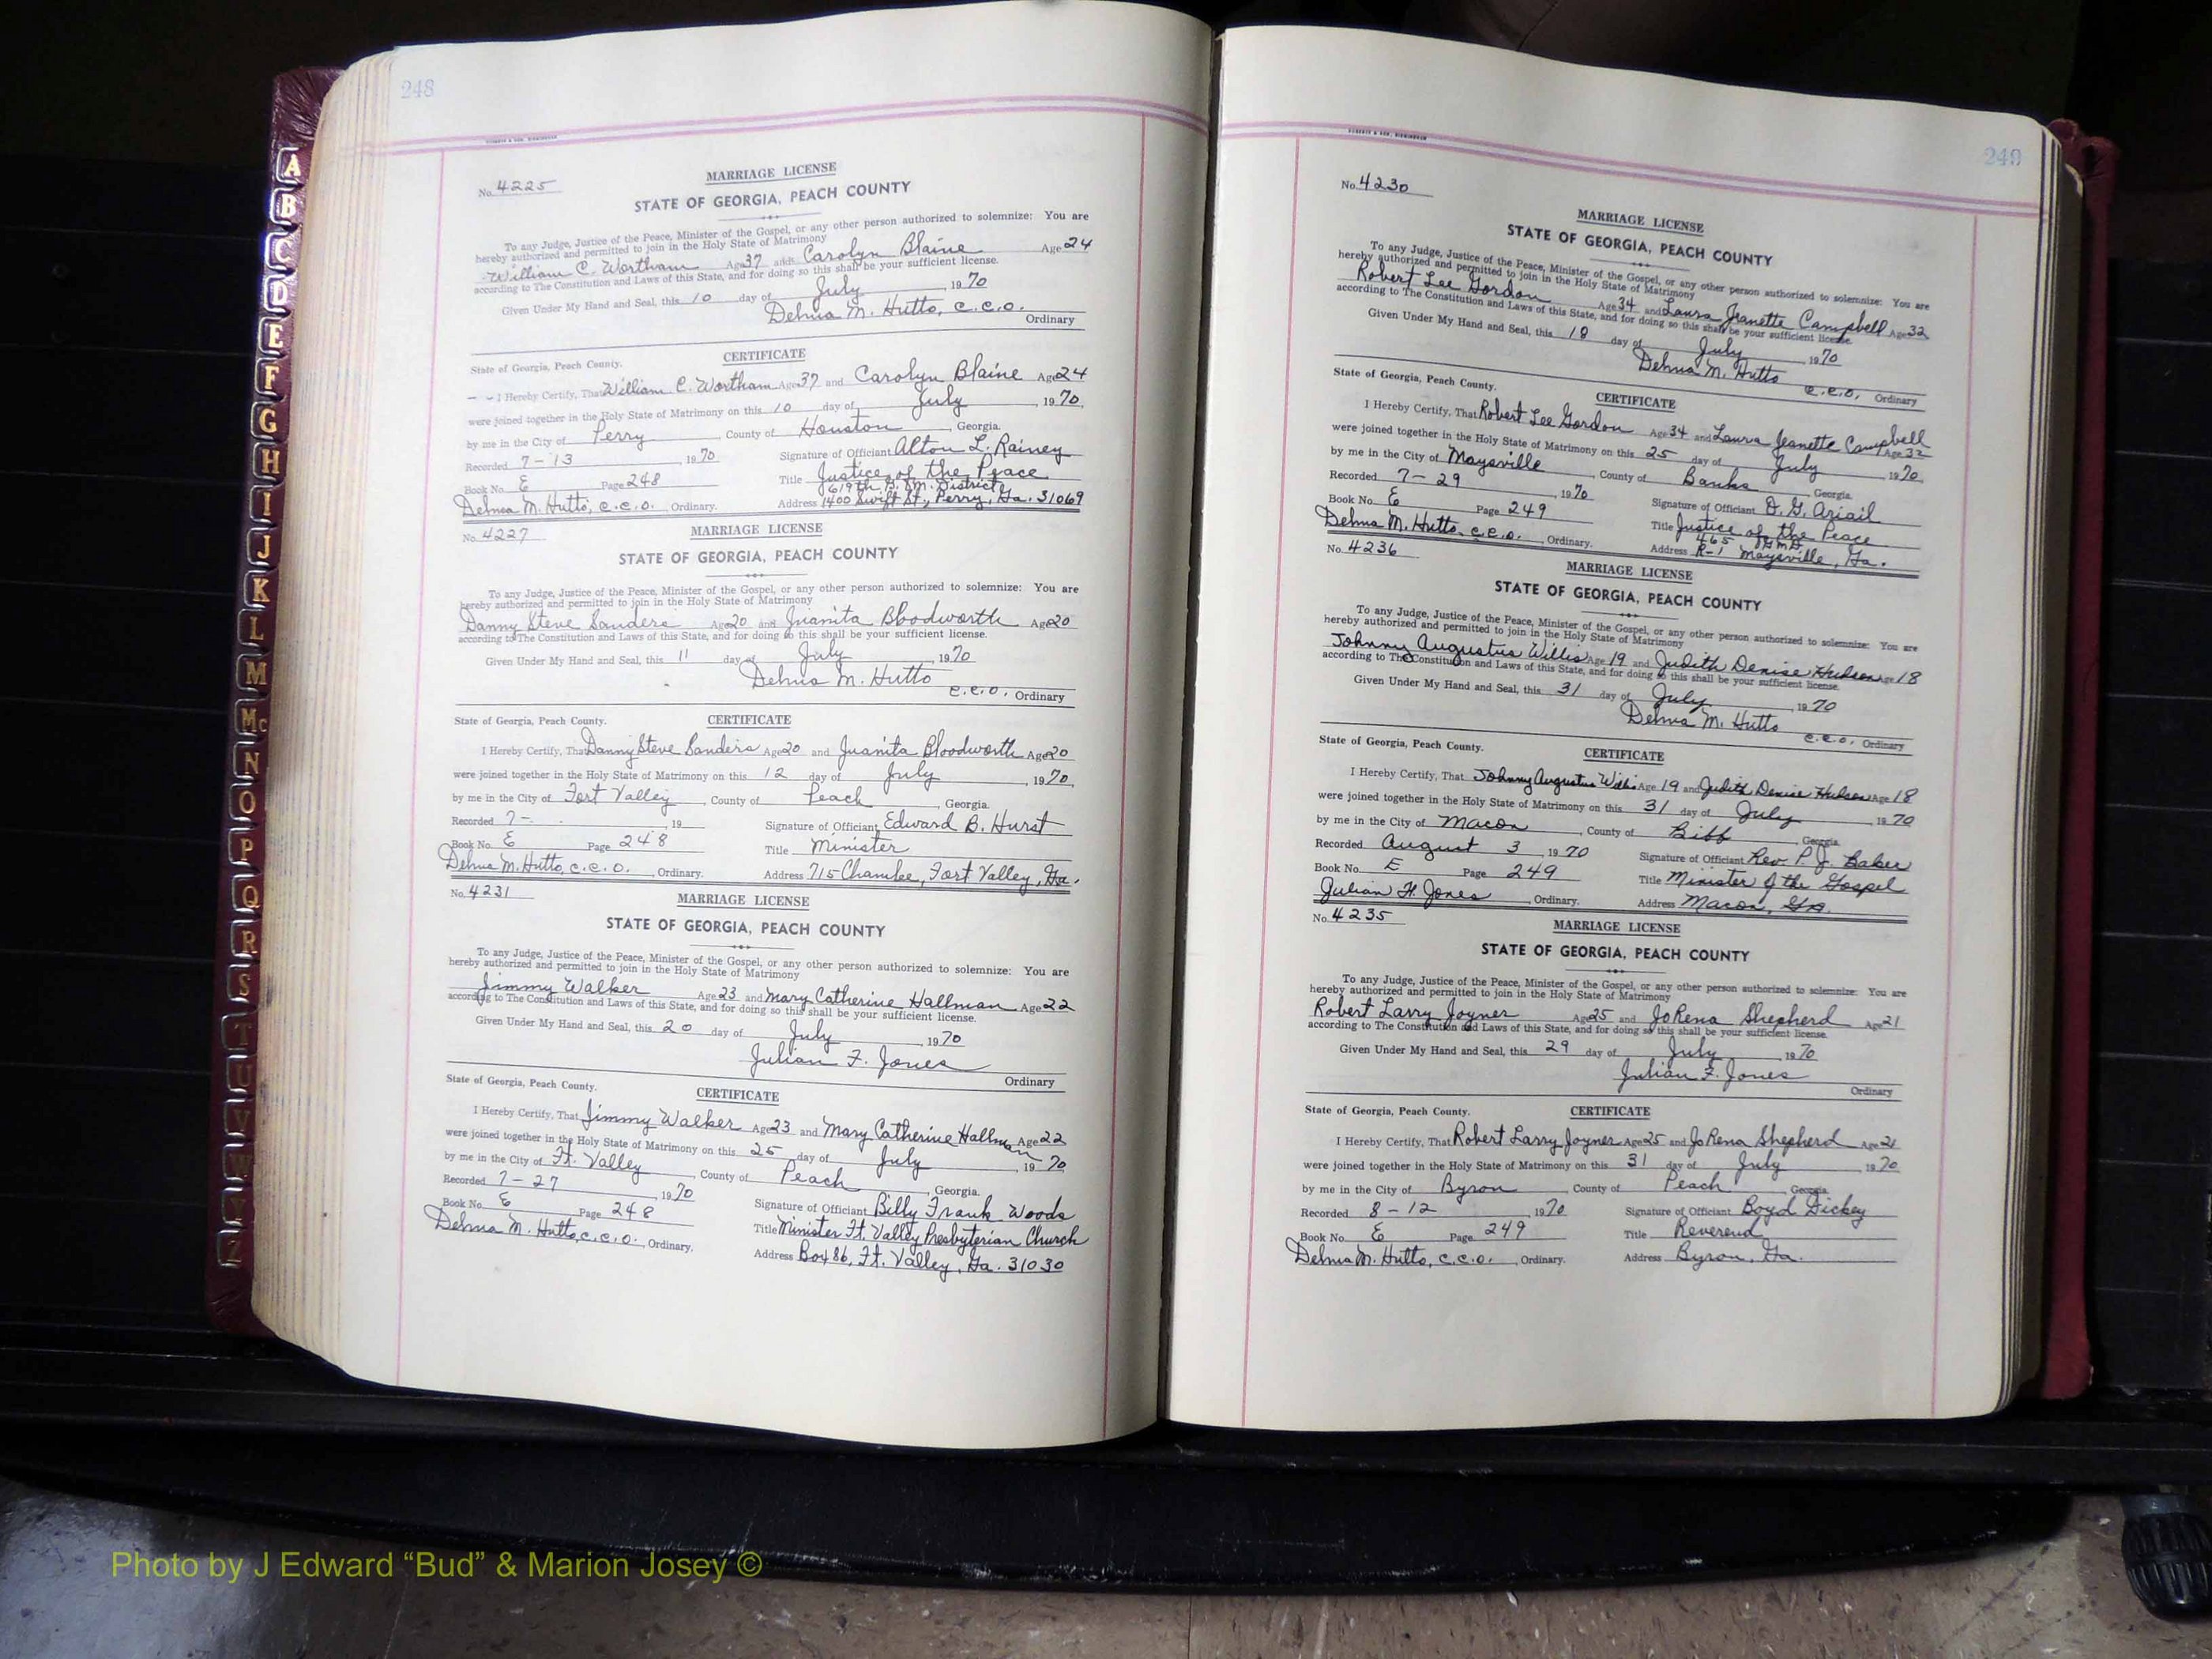 248
MARRIAGE LICENSE
No. 4225
STATE OF GEORGIA, PEACH COUNTY
To any Judge, Justice of the Peace, Minister of the Gospel, or any other person authorized to solemnize: You are
hereby authorized and permitted to join in the Holy State of Matrimony
William C. Wortham Age 37 and Carolyn Blaine Age 24
according to The Constitution and Laws of this State, and for doing so this shall be your sufficient license.
Given Under My Hand and Seal, this 10 day of July, 1970
Delma M. Hutto, C.C.O.
Ordinary
State of Georgia, Peach County. CERTIFICATE
I Hereby Certify, That William C. Wortham Age 37 and Carolyn Blaine Age 24
were joined together in the Holy State of Matrimony on this 10 day of July, 1970,
by me in the City of Perry, County of Houston, Georgia.
Recorded 7-13 1970 Signature of Official Alton L. Rainey
Title Justice of the Peace
619th G. M. District
Book No. E Page 248
Delma M. Hutto, C.C.O. Ordinary. Address 1400 Swift St., Perry, Ga. 31069
No. 4227 MARRIAGE LICENSE
STATE OF GEORGIA, PEACH COUNTY
To any Judge, Justice of the Peace, Minister of the Gospel, or any other person authorized to solemnize: You are
hereby authorized and permitted to join in the Holy State of Matrimony
Danny Steve Sanders Age 20 and Juanita Bloodworth Age 20
according to The Constitution and Laws of this State, and for doing so this shall be your sufficient license.
Given Under My Hand and Seal, this 11 day of July, 1970
Delma M. Hutto
C.C.O., Ordinary
State of Georgia, Peach County. CERTIFICATE
I Hereby Certify, That Danny Steve Sanders Age 20 and Juanita Bloodworth Age 20
were joined together in the Holy State of Matrimony on this 12 day of July, 1970,
by me in the City of Fort Valley, County of Peach, Georgia.
Recorded 7- 19 Signature of Official Edward B. Hurst
Book No. E Page 248 Title Minister
Delma M. Hutto, C.C.O., Ordinary. Address 715 Chamlee, Fort Valley, Ga.
No. 4231 MARRIAGE LICENSE
STATE OF GEORGIA, PEACH COUNTY
To any Judge, Justice of the Peace, Minister of the Gospel, or any other person authorized to solemnize: You are
hereby authorized and permitted to join in the Holy State of Matrimony
Jimmy Walker Age 23 and Mary Catherine Hallman Age 22
according to The Constitution and Laws of this State, and for doing so this shall be your sufficient license.
Given Under My Hand and Seal, this 20 day of July, 1970
Julian F. Jones
Ordinary
State of Georgia, Peach County. CERTIFICATE
I Hereby Certify, That Jimmy Walker Age 23 and Mary Catherine Hallman Age 22
were joined together in the Holy State of Matrimony on this 25 day of July, 1970
by me in the City of Ft. Valley, County of Peach, Georgia.
Recorded 7-27, 1970 Signature of Official Billy Frank Woods
Book No. E Page 248 Title Minister Ft. Valley Presbyterian Church
Delma M. Hutto, C.C.O., Ordinary, Address Box 86, Ft. Valley, Ga. 31030
249
No. 4230
MARRIAGE LICENSE
STATE OF GEORGIA, PEACH COUNTY
To any Judge, Justice of the Peace, Minister of the Gospel, or any other person authorized to solemnize: You are
hereby authorized and permitted to join in the Holy State of Matrimony
Robert Lee Gordon Age 34 and Laura Jeanette Campbell Age 32
according to The Constitution and Laws of this State, and for doing so this shall be your sufficient license.
Given Under My Hand and Seal, this 18 day of July, 1970
Delma M. Hutto
C.C.O., Ordinary
State of Georgia, Peach County. CERTIFICATE
I Hereby Certify, That Robert Lee Gordon Age 34 and Laura Jeanette Campbell Age 32
were joined together in the Holy State of Matrimony on this 25 day of July, 1970,
by me in the City of Maysville, County of Banks, Georgia.
Recorded 7-29, 1970 Signature of Official D. G. Ariail
Book No. E Page 249 Title Justice of the Peace
465
Delma M. Hutto, C.C.O., Ordinary. Address R-1 Maysville, Ga.
No. 4236
MARRIAGE LICENSE
STATE OF GEORGIA, PEACH COUNTY
To any Judge, Justice of the Peace, Minister of the Gospel, or any other person authorized to solemnize: You are
hereby authorized and permitted to join in the Holy State of Matrimony
Johnny Augustus Willis Age 19 and Judith Denise Hudson Age 18
according to The Constitution and Laws of this State, and for doing so this shall be your sufficient license.
Given Under My Hand and Seal, this 31 day of July, 1970
Delma M. Hutto
C.C.O., Ordinary
State of Georgia, Peach County. CERTIFICATE
I Hereby Certify, That Johnny Augustus Willis Age 19 and Judith Denise Hudson Age 18
were joined together in the Holy State of Matrimony on this 31 day of July, 1970
by me in the City of Macon, County of Bibb, Georgia.
Recorded August 3, 1970 Signature of Official Rev P. J. Baker
Book No. E Page 249 Title Minister of the Gospel
Julian F. Jones, Ordinary. Address Macon, Ga.
No. 4235
MARRIAGE LICENSE
STATE OF GEORGIA, PEACH COUNTY
To any Judge, Justice of the Peace, Minister of the Gospel, or any other person authorized to solemnize: You are
hereby authorized and permitted to join in the Holy State of Matrimony
Robert Larry Joyner Age 25 and JoRena Shepherd Age 21
according to The Constitution and Laws of this State, and for doing so this shall be your sufficient license.
Given Under My Hand and Seal, this 29 day of July, 1970
Julian F. Jones
Ordinary
State of Georgia, Peach County. CERTIFICATE
I Hereby Certify, That Robert Larry Joyner Age 25 and JoRena Shepherd Age 21
were joined together in the Holy State of Matrimony on this 31 day of July, 1970
by me in the City of Byron, County of Peach, Georgia.
Recorded 8-12, 1970 Signature of Official Boyd Dickey
Book No. E Page 249 Title Reverend
Delma M. Hutto, C.C.O., Ordinary. Address Byron, Ga.
A
B
C
D
E
F
G
H
I
J
K
L
M
Mc
N
O
P
Q
R
S
T
U
V
W
Y
Z
Photo by J Edward “Bud” & Marion Josey ©